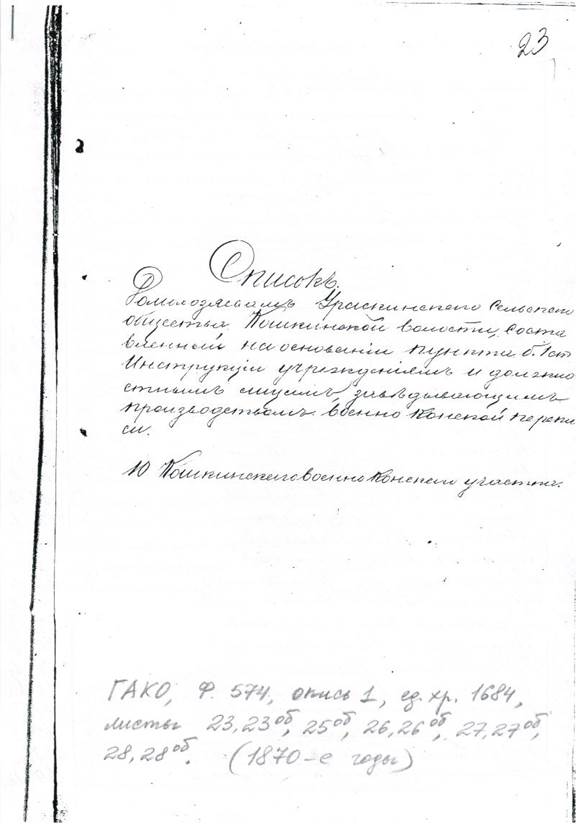 23
Списокъ
Домохозяевамъ Ураскинскаго Сельскаго
общества Пошкинской волости, соста
вленный на основаніи пункта 6. 1 ст
Инструкціи учрежденіямъ и должно
стнымъ лицамъ, завѣдывающимъ
производствомъ военно конской перепи
си.
10 Пошкинскаго военно Конскаго участка.
ГАКО, Ф. 574, опись 1, ед. хр. 1684,
листы 23, 23об, 25об, 26, 26об, 27, 27об,
28, 28об. (1870-е годы)